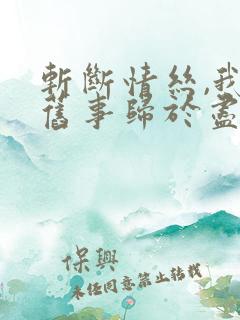 斬斷情絲,我
舊事歸於盡
保興
未任同意禁止转载